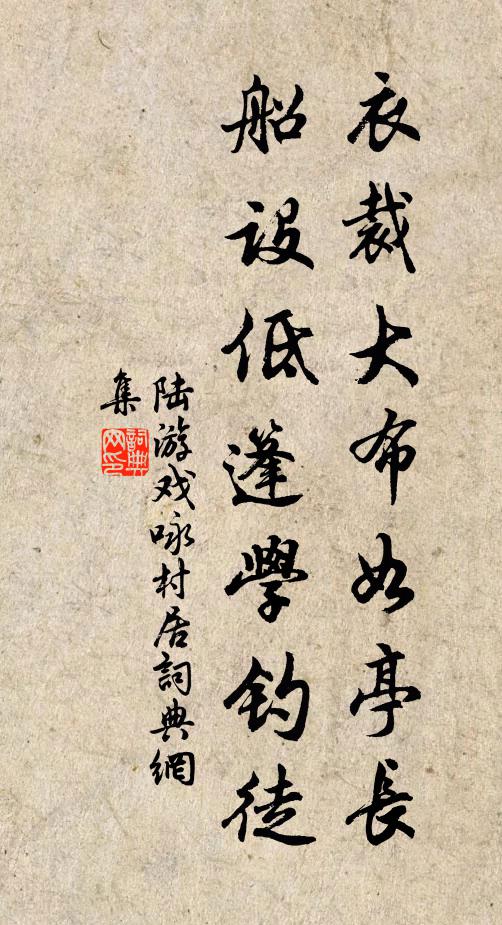 衣裁大布如亭長
船設低篷學釣徒
陆游戏咏村居詞典網
集
詞典网印